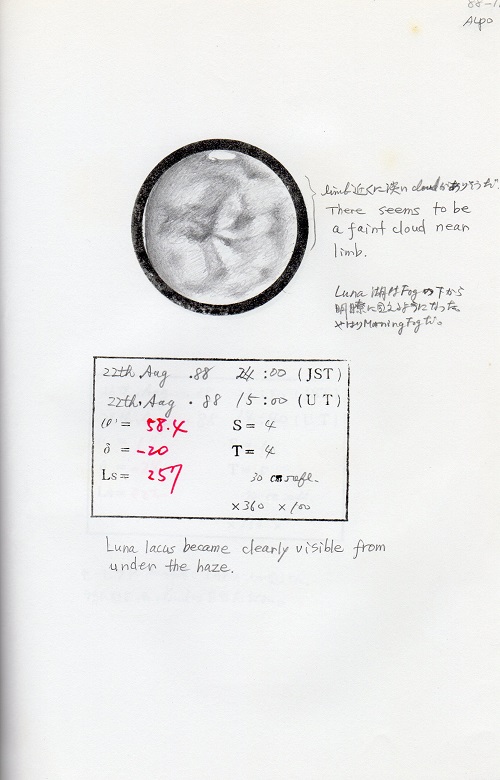 88-1
ALPO
limb近くに淡いcloudがありそうだ。
There seems to be
a faint cloud near
limb.
Luna 湖はFogの下から
明瞭に見えるようになった。
やはりMorning Fogだ。
22th Aug .88 24:00 (JST)
22th. Aug . 88 15:00 (UT)
ω = 58.4 S = 4
δ = -20 T = 4
Ls = 257 30 cm refl.
×360 ×100
Luna lacus became clearly visible from
under the haze.